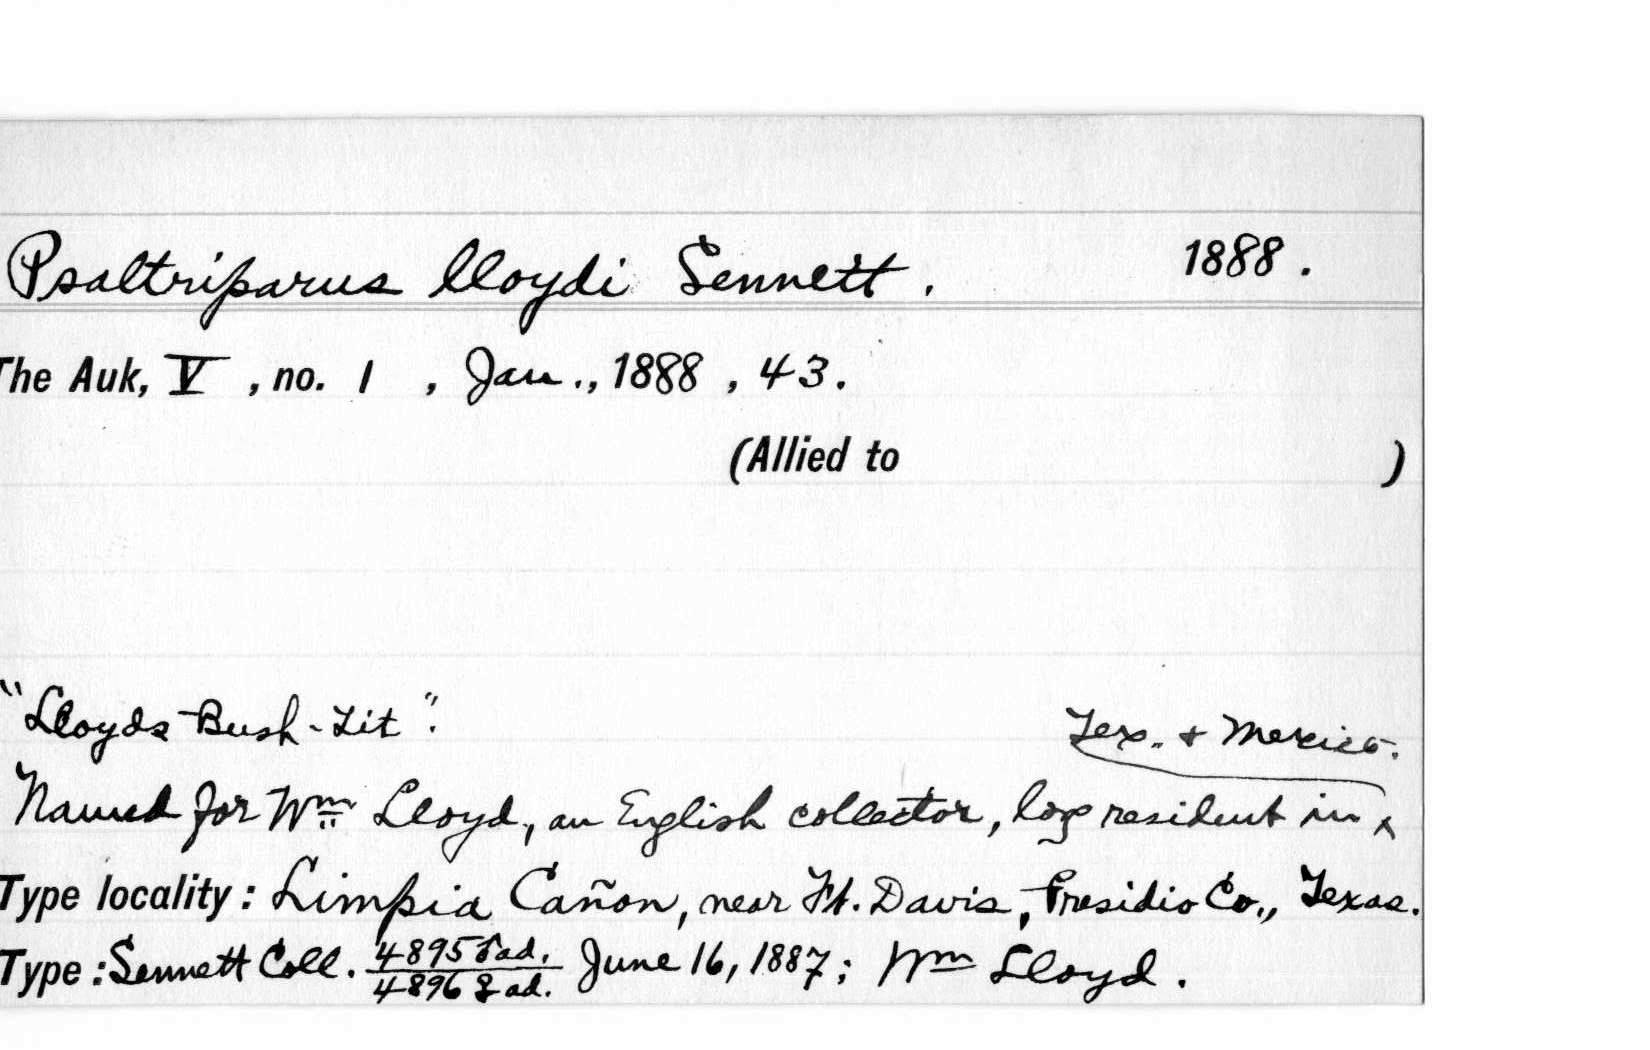 Psaltriparus lloydi Sennett. 1888.
The Auk, V, no. 1, Jan., 1888, 43.
(Allied to )
"Lloyds Bush-Tit".
Tex. & Mexico.
Named for Wm Lloyd, an English collector, long resident in ^
Type locality: Limpia Cañon, near Ft. Davis, Presidio Co., Texas.
Type: Sennett Coll. 4895 ♂ ad. / 4896 ♀ ad. June 16, 1887; Wm Lloyd.